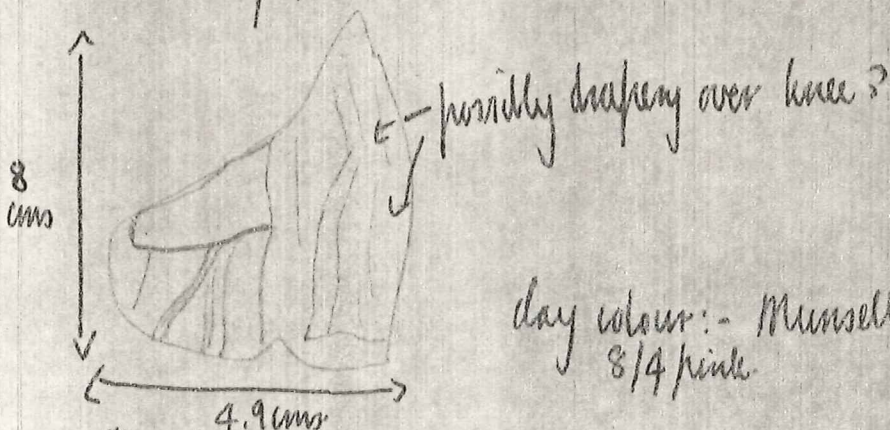 possibly drapery over knee?
8
cms
clay colour:- Munsell
8/4 pink.
4.9cms